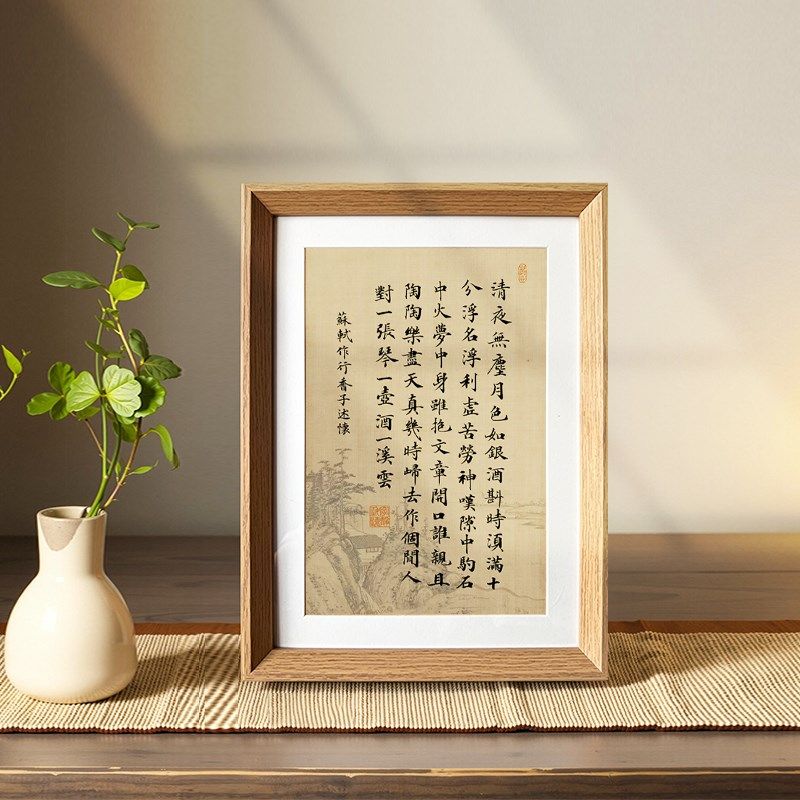 清夜無塵月色如銀酒斟時須滿十
分浮名浮利虛苦勞神嘆隙中駒石
中火夢中身雖抱文章開口誰親且
陶陶樂盡天真幾時歸去作個閒人
對一張琴一壺酒一溪雲
蘇軾作行香子述懷